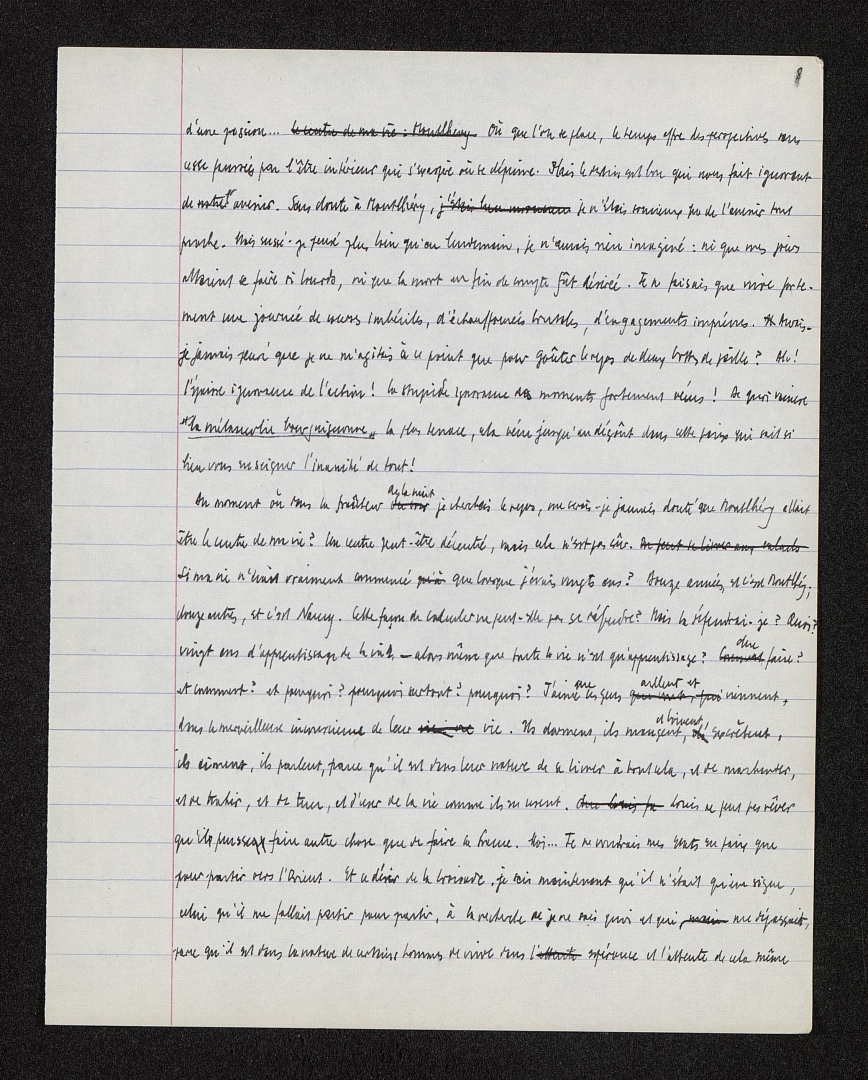 8
d'une passion... le centre de ma vie : Montlhéry. Où que l'on se place, le temps offre des perspectives sans
cesse faussées par l'être intérieur qui s'exaspère ou se déprime. Mais le destin est bon qui nous fait ignorant
de notre avenir. Sans doute à Montlhéry, je n'étais soucieux que de l'avenir tout
proche. Mais eussé-je pensé plus loin qu'au lendemain, je n'aurais rien imaginé : ni que mes jours
allaient se faire si lourds, ni que la mort en fin de compte fût désirée. Je ne faisais que vivre forte-
ment une journée de courses imbéciles, d'échauffourées brutales, d'engagements imprévus. Avais-
je jamais pensé que je ne m'agitais à ce point que pour goûter le repos de deux bottes de paille ? Ah !
l'épaisse ignorance de l'action ! la stupide ignorance des moments fortement vécus ! De quoi vaincre
"la mélancolie bourguignonne" la plus tenace, cela même jusqu'au dégoût dans cette paix qui sait si
bien vous enseigner l'inanité de tout !
Au moment où dans la fraîcheur de la nuit je cherchais le repos, me serais-je jamais douté que Montlhéry allait
être le centre de ma vie ? Un centre peut-être décentré, mais cela n'est pas sûr.
Si ma vie n'était vraiment commencé qu'à que lorsque j'avais vingt ans ? Douze années, et c'est Montlhéry ;
douze autres, et c'est Nancy. Cette façon de calculer ne peut-elle pas se défendre ? Mais la défendrai-je ? Quoi ?
vingt ans d'apprentissage de la vie — alors même que toute la vie n'est qu'apprentissage ? Comment que faire ?
et comment ? et pourquoi ? pourquoi surtout ? pourquoi ? J'aime que les gens aillent et viennent,
dans la merveilleuse inconscience de leur vie. Ils dorment, ils mangent, et boivent, excrètent,
ils aiment, ils parlent, parce qu'il est dans leur nature de se livrer à tout cela, et de marchander,
et de trahir, et de tuer, et d'user de la vie comme ils en usent. Louis ne peut pas rêver
qu'il puisse faire autre chose que de faire la France. Moi... Je ne voudrais mes États en paix que
pour partir vers l'Orient. Et ce désir de la Croisade, je sais maintenant qu'il n'était qu'un signe,
celui qu'il me fallait partir pour partir, à la recherche de je ne sais quoi et qui, me dépassait,
parce qu'il est dans la nature de certains hommes de vivre dans l'attente espérance et l'attente de cela même